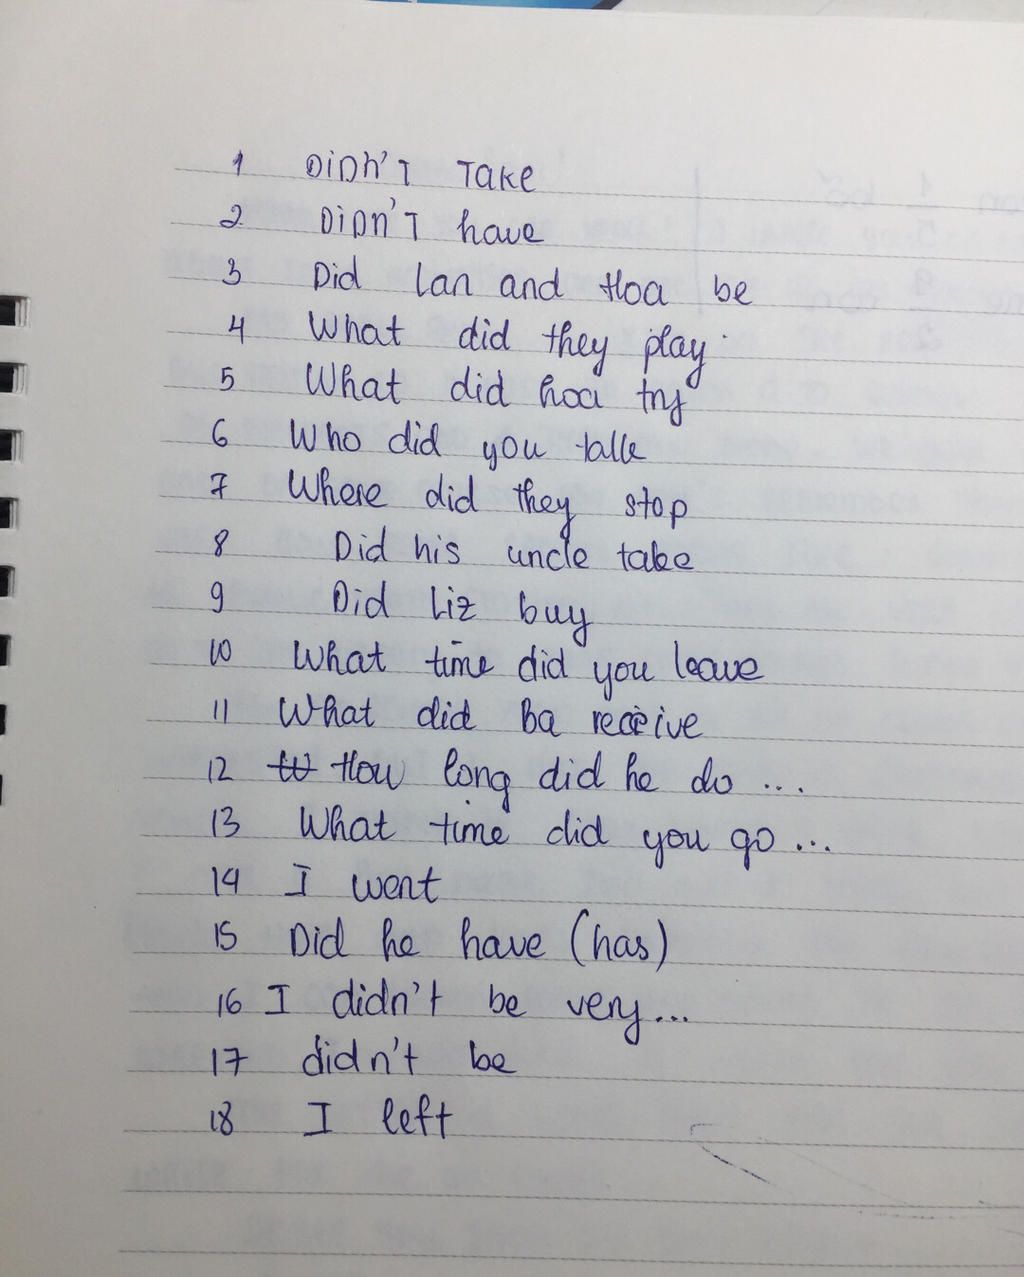 1 DiDn'T TaKe
2 DiDn'T have
3 Did Lan and Hoa be
4 What did they play
5 What did hoa try
6 Who did you talk
7 Where did they stop
8 Did his uncle take
9 Did Liz buy
10 What time did you leave
11 What did Ba receive
12 How long did he do ...
13 What time did you go ...
14 I went
15 Did he have (has)
16 I didn't be very...
17 didn't be
18 I left